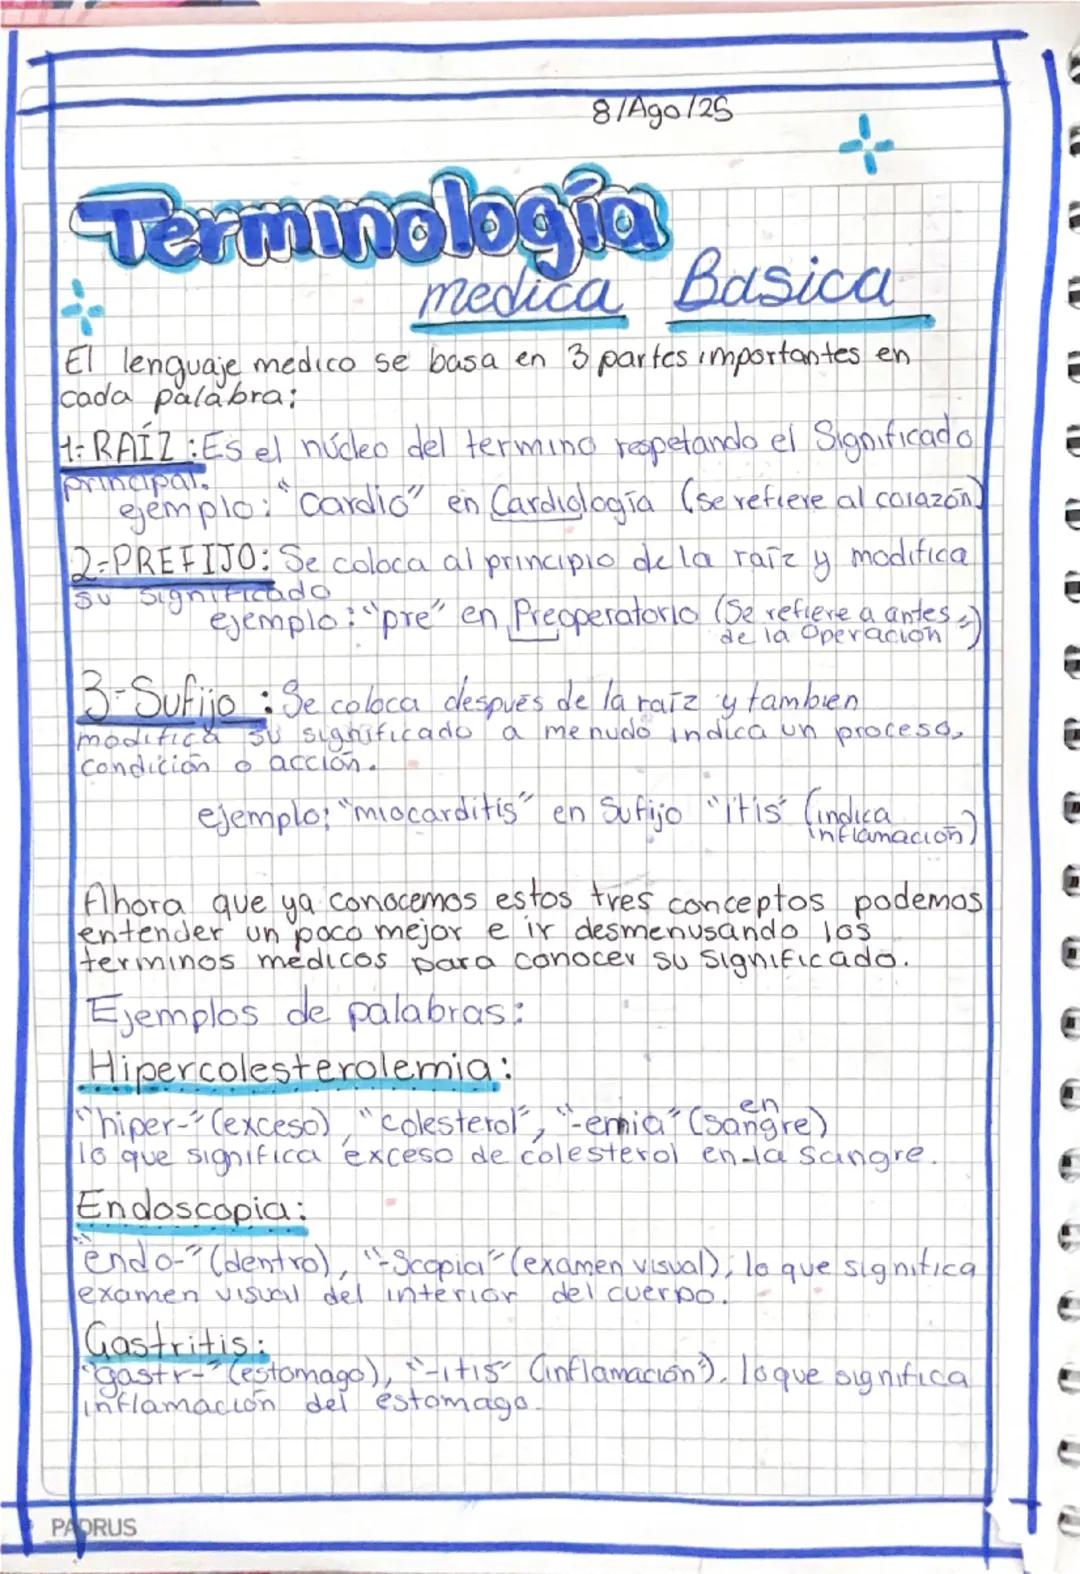 8/Ago/25
Terminología
medica Basica
El lenguaje medico se basa en 3 partes importantes en
cada palabra:
1: RAÍZ : Es el núcleo del termino respetando el Significado
principal.
ejemplo: "cardio" en Cardiología (se refiere al corazón)
2-PREFIJO: Se coloca al principio de la raíz y modifica
su significado
ejemplo: "pre" en Preoperatorio (Se refiere a antes
de la Operación)
3-Sufijo : Se coloca después de la raíz y tambien
modifica su significado a menudo indica un proceso,
condición o acción.
ejemplo: "miocarditis" en Sufijo "itis" (indica
inflamación)
Ahora que ya conocemos estos tres conceptos podemos
entender un poco mejor e ir desmenusando los
terminos médicos para conocer su significado.
Ejemplos de palabras:
Hipercolesterolemia:
"hiper-" (exceso), "colesterol", "-emia" (en sangre)
lo que significa exceso de colesterol en la sangre.
Endoscopia:
"endo-" (dentro), "-Scopia" (examen visual), lo que significa
examen visual del interior del cuerpo.
Gastritis:
"gastr-" (estomago), "-itis" (inflamación), lo que significa
inflamación del estomago.
PADRUS